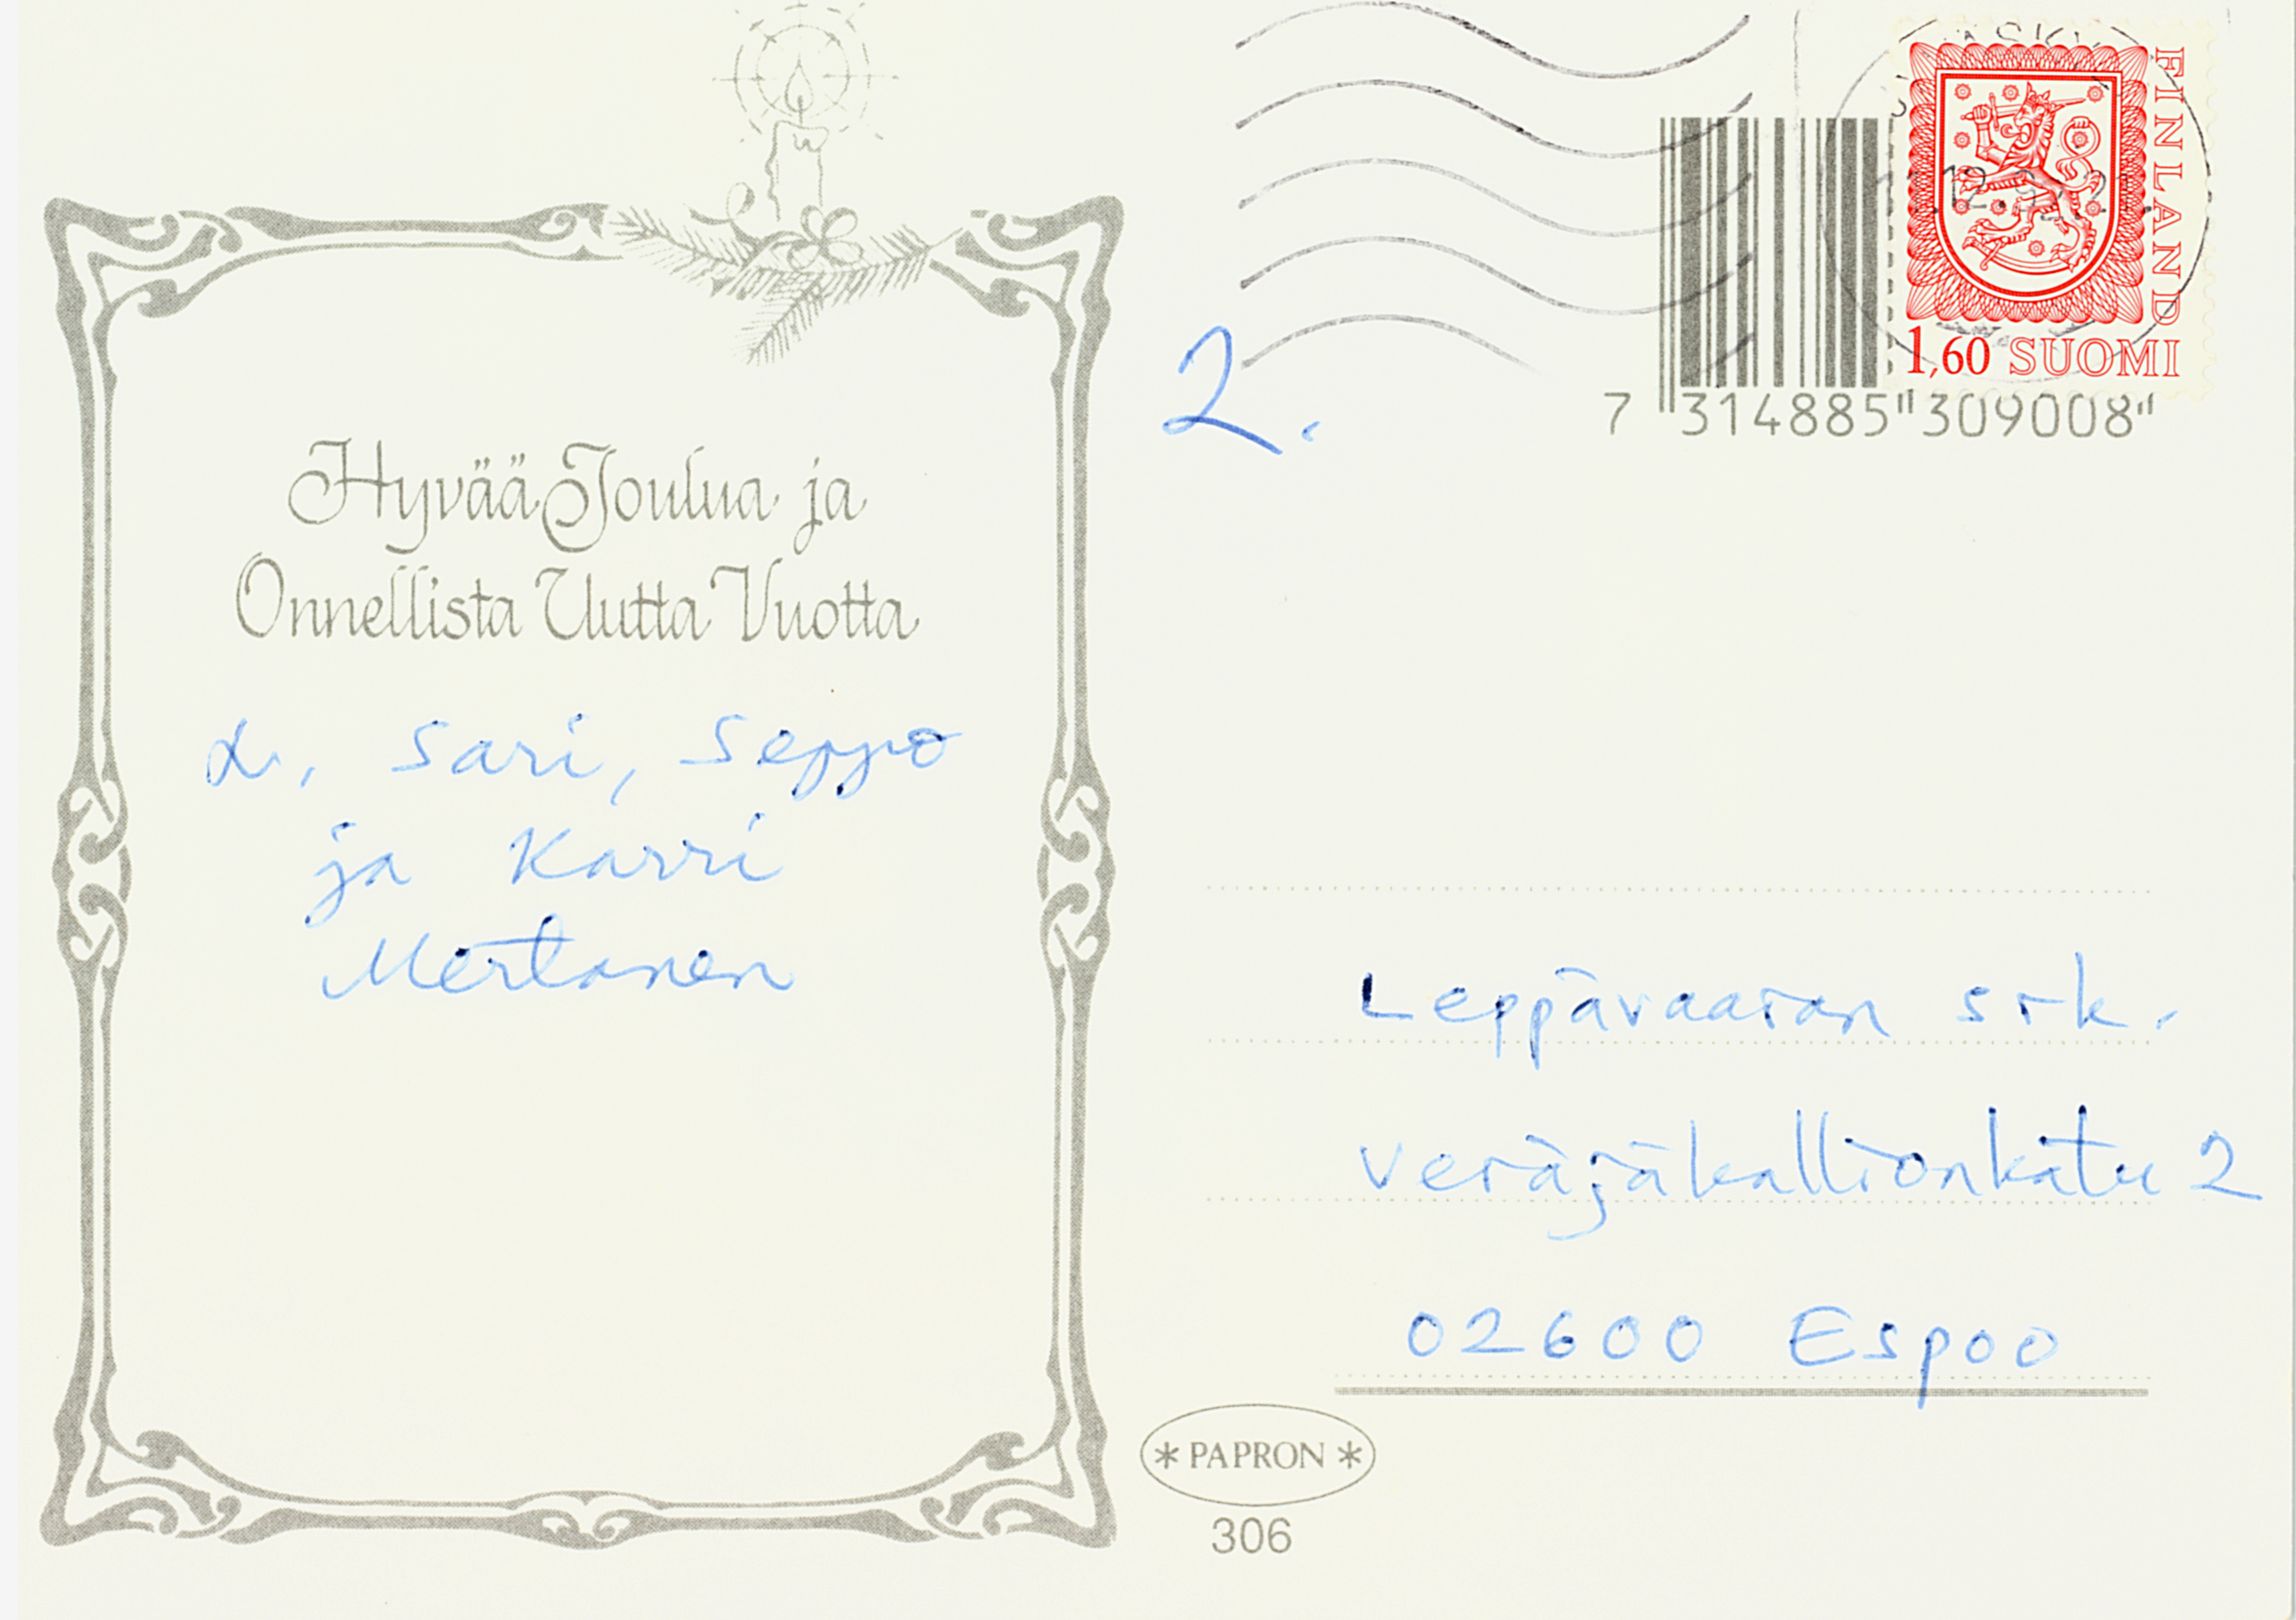 Hyvää Joulua ja
Onnellista Uutta Vuotta
Sari, Seppo
ja Karri
Mertanen
2.
FINLAND
1,60 SUOMI
7 314885 309008
Leppävaaran srk.
Veräjäkallionkatu 2
02600 Espoo
* PAPRON *
306